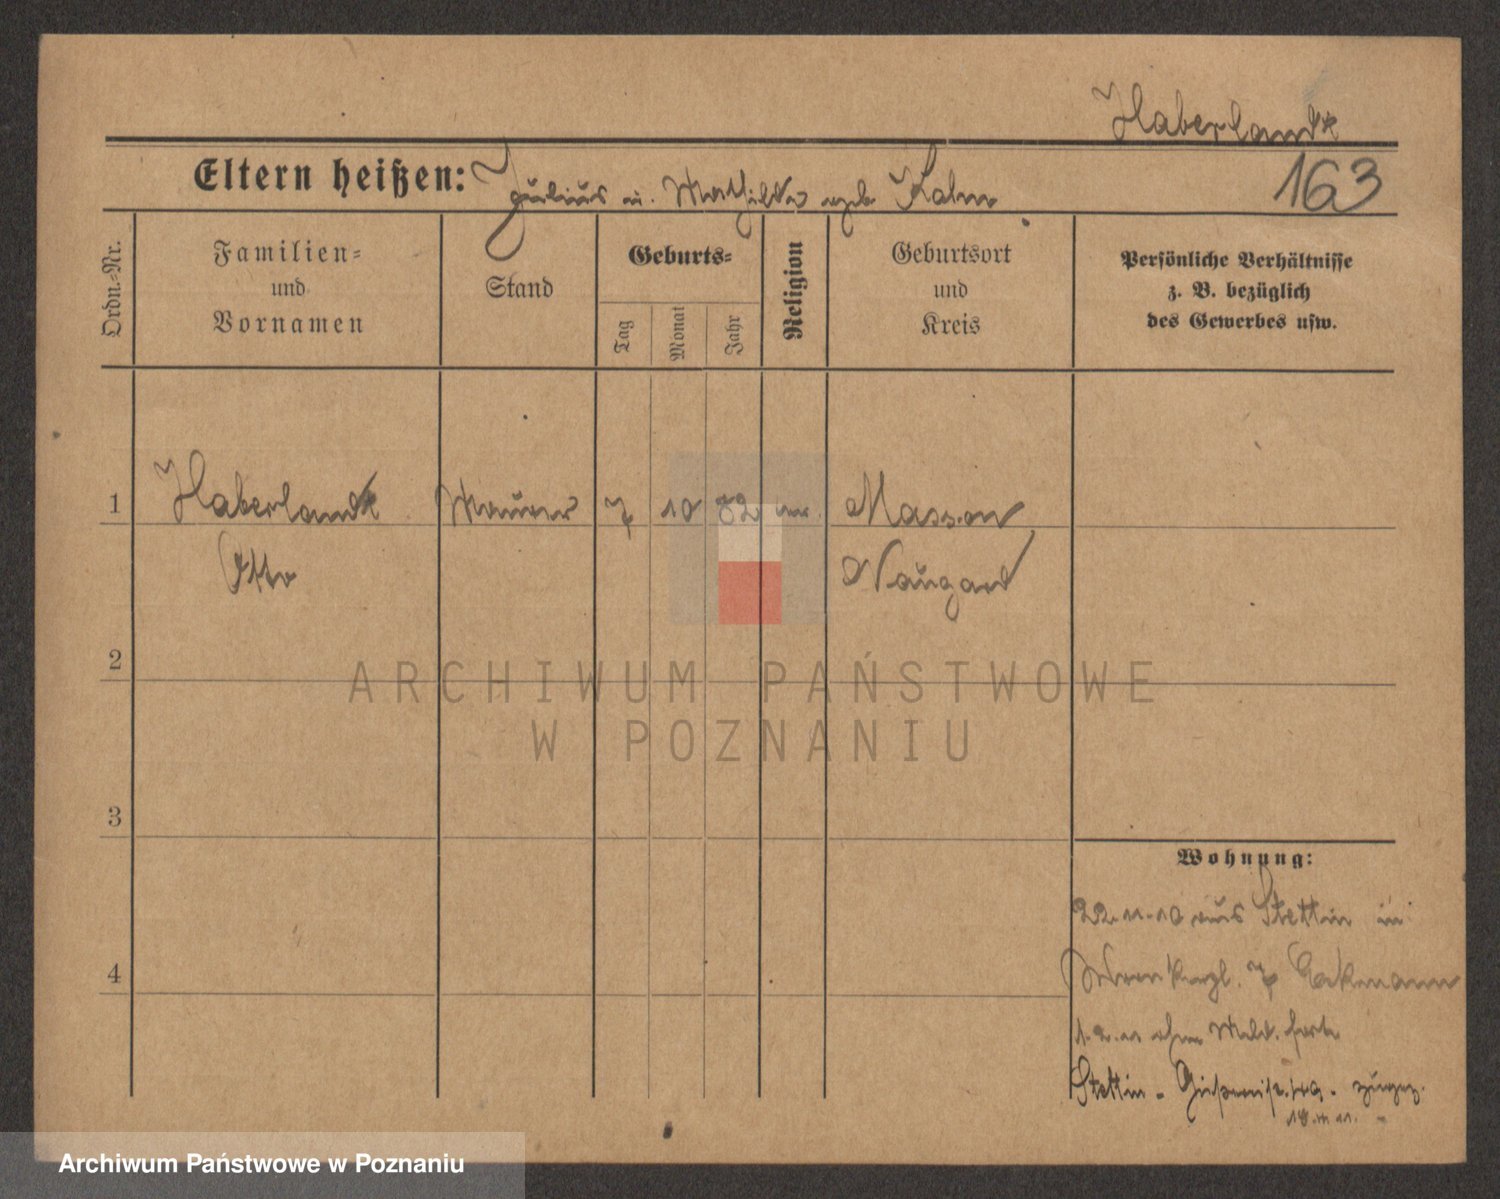 Haberlandt
Eltern heißen: Julius u. Mathilde geb. Kahn
163
Ordn.-Nr.
Familien-
und
Vornamen
Stand
Geburts-
Tag
Monat
Jahr
Religion
Geburtsort
und
Kreis
Persönliche Verhältnisse
z. B. bezüglich
des Gewerbes usw.
1
Haberlandt Maurer 7 10 82 ev. Massow
Otto Naugard
2
ARCHIWUM PAŃSTWOWE
W POZNANIU
3
Wohnung:
22.11.10 aus Stettin in
4
7 Eckmann
1.2.11 ohne Meld. fort
Stettin - zugez.
Archiwum Państwowe w Poznaniu